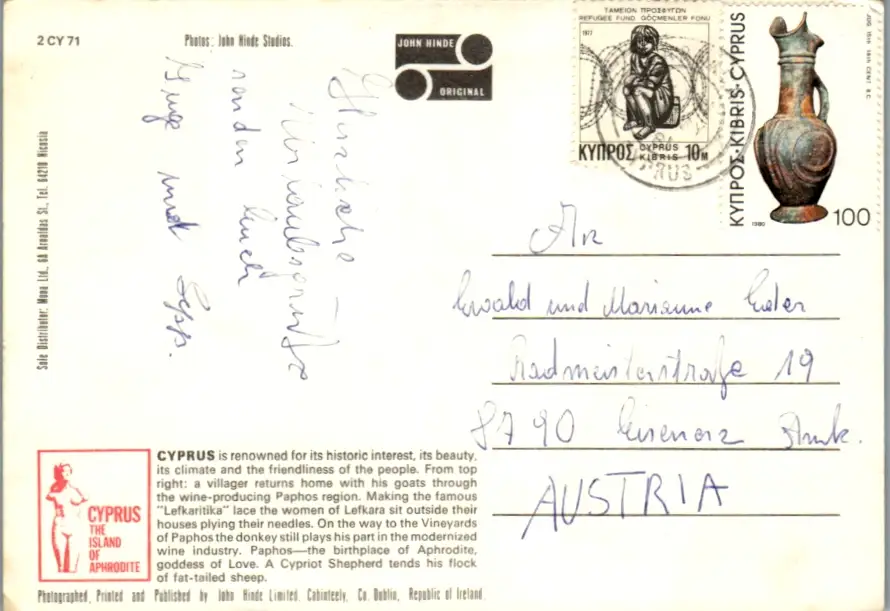 2 CY 71
Photos: John Hinde Studios.
JOHN HINDE
ORIGINAL
ΤΑΜΕΙΟΝ ΠΡΟΣΦΥΓΩΝ
REFUGEE FUND GÖÇMENLER FONU
1977
ΚΥΠΡΟΣ CYPRUS KIBRIS 10M
ΚΥΠΡΟΣ·KIBRIS·CYPRUS
JUG 15TH 14TH CENT B.C.
1980
100
Herzliche
Urlaubsgrüße
senden Euch
Inge und Sepp.
An
Ewald und Marianne
Radmeisterstraße 19
8790 Eisenerz
AUSTRIA
Sole Distributor: Mona Ltd., 6A Arnaldas St., Tel. 64210 Nicosia
CYPRUS
THE
ISLAND
OF
APHRODITE
CYPRUS is renowned for its historic interest, its beauty,
its climate and the friendliness of the people. From top
right: a villager returns home with his goats through
the wine-producing Paphos region. Making the famous
"Lefkaritika" lace the women of Lefkara sit outside their
houses plying their needles. On the way to the Vineyards
of Paphos the donkey still plays his part in the modernized
wine industry. Paphos—the birthplace of Aphrodite,
goddess of Love. A Cypriot Shepherd tends his flock
of fat-tailed sheep.
Photographed, Printed and Published by John Hinde Limited, Cabinteely, Co. Dublin, Republic of Ireland